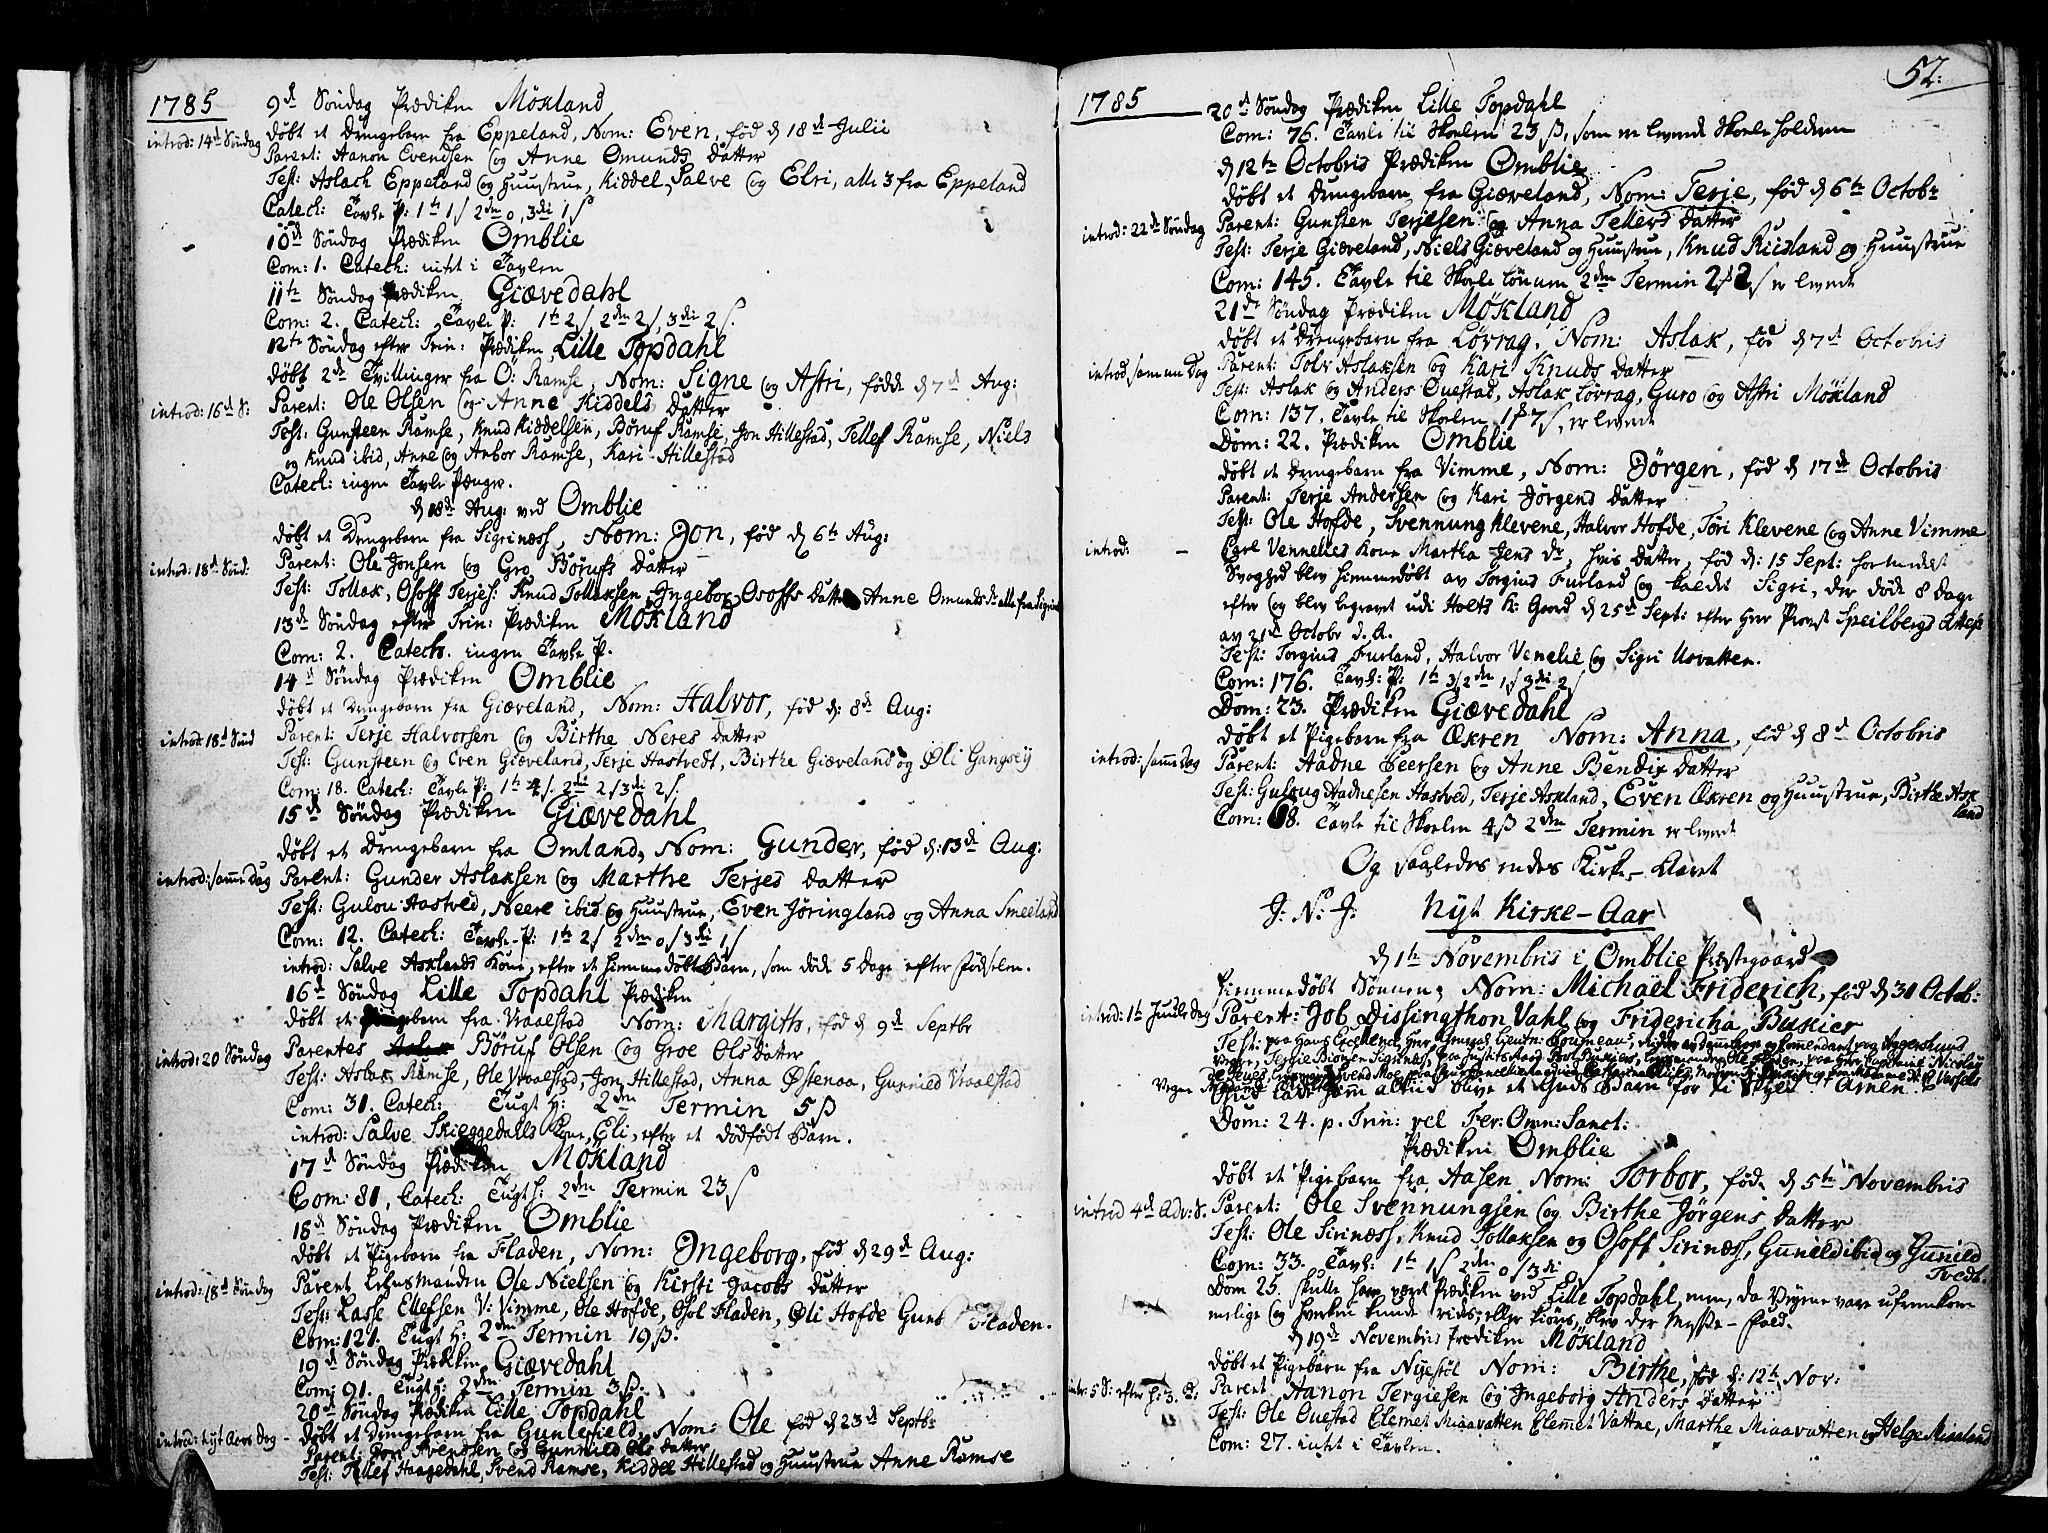 1785
9d Søndag Prædiken Mökland
introd: 14d Søndag
døbt et Drengebarn fra Eppeland, Nom: Even, fød d 18d Julii
Parent: Aanon Evendsen og Anne Omunds datter
Test: Aslach Eppeland og Huustrue, Kiddel, Salve og Elri, alle 3 fra Eppeland
Catech: Tavle P: 1te 1 s 2den 0, 3di 1 s
10d Søndag Prædiken Omblie
Com: 1. Catech: intet i Tavlen
11te Søndag Prædiken Giævedahl
Com: 2. Catech: Tavle P: 1te 2 s, 2den 2 s, 3di 2 s.
12te Søndag efter Trin: Prædiken Lille Topdahl
døbt 2de Tvillinger fra O: Ramse, Nom: Signe og Astri, fødde d 7d Aug:
introd: 16d S:
Parent: Ole Olsen og Anne Kiddels datter
Test: Gunsteen Ramse, Knud Kiddelsen, Böruf Ramse, Jon Hillestad, Tellef Ramse, Niels
og Knud ibid, Anne og Anbor Ramse, Kari Hillestad
Catech: ingen Tavle Penge.
d 18d Aug: ved Omblie
døbt et Drengebarn fra Sigrinæss, Nom: Jon, fød d 6te Aug:
introd: 18d Sønd:
Parent: Ole Jonsen og Gro Börufs datter
Test: Tollak, Osoff Terjes: Knud Tollaksen Ingebor Osoffs datter Anne Omunds dr alle fra Sigrinæs
13de Søndag efter Trin: Prædiken Mökland
Com: 2. Catech. ingen Tavle P.
14d Søndag Prædiken Omblie
døbt et Drengebarn fra Giæveland, Nom: Halvor, fød d: 8d Aug:
introd: 18d Sønd
Parent: Terje Halvorsen og Birthe Neres datter
Test: Gunsteen og Even Giæveland, Terje Hastvedt, Birthe Giæveland og Øli Gangsey
Com: 18. Catech: Tavle P: 1te 4 s. 2den 2 s 3di 2 s.
15d Søndag Prædiken Giævedahl
døbt et Drengebarn fra Omland, Nom: Gunder, fød d: 13d Aug:
introd: samme Dag
Parent: Gunder Aslaksen og Marthe Terjes datter
Test: Gulou Hastved, Neere ibid og Huustrue, Even Jöringland og Anna Smeeland
Com: 12. Catech: Tavle P: 1te 2 s 2den 0 s 3di 1 s
introd: Salve Asklands Kone, efter et hiemmedøbt Barn, som døde 5 Dage efter Fødselen.
16d Søndag Lille Topdahl Prædiken
døbt et Pigebarn fra Vraalstad Nom: Margith, fød d 9d Septbr
introd: 20 Søndag
Parentes Böruf Olsen og Groe Ols datter
Test: Aslak Ramse, Ole Vraalstad, Jon Hillestad, Anna Østenaa, Gunnild Vraalstad
Com: 31. Catech: Tugt H: 2den Termin 5 ß
introd: Salve Skieggedalls Kone, Eli, efter et dødfødt Barn.
17d Søndag Prædiken Mökland
Com: 81, Catech: Tugt H: 2den Termin 23 s
18d Søndag Prædiken Omblie
døbt et Pigebarn fra Fladen, Nom: Ingeborg, fød d 29d Aug:
introd: 18d Søndag
Parent Lehnsmanden Ole Nielsen og Kirsti Jacobs datter
Test: Lasse Ellefsen V: Vimme, Ole Hofde, Osol Fladen, Øli Hofde Fladen.
Com: 121. Tugt H: 2den Termin 19 ß.
19d Søndag Prædiken Giævedahl
Com: 91. Tugt H: 2den Termin 3 ß.
20d Søndag Prædiken Lille Topdahl
introd: Nyt Aars Dag
døbt et Drengebarn fra Gunlefield, Nom: Ole fød d 23d Septbr
Parent: Jon Svendsen og Gunnild Ols datter
Test: Tellef Haagedahl, Svend Ramse, Kiddel Hillestad og Huustrue Anne Ramse
52:
1785
20d Søndag Prædiken Lille Topdahl
Com: 76. Tavle til Skolen 23 ß, som er leveret Skoleholderen
d 12te Octobris Prædiken Omblie
døbt et Drengebarn fra Giæveland, Nom: Terje, fød d 6te Octobr
introd: 22d Søndag
Parent: Gunsten Terjesen og Anna Tellefs datter
Test: Terje Giæveland, Niels Giæveland og Huustrue, Knud Riisland og Huustrue
Com: 145. Tavle til Skole Lönnen 2den Termin 2 s er leveret
21de Søndag Prædiken Mökland
døbt et Drengebarn fra Lövrag, Nom: Aslak, fød d 7d Octobris
introd: samme Dag
Parent: Tolv Aslaksen og Kari Knuds datter
Test: Aslak og Anders Ouestad, Aslak Lövrag, Guro og Astri Mökland
Com: 137. Tavle til Skolen 1 ß 7 s, er leveret
Dom: 22. Prædiken Omblie
døbt et Drengebarn fra Vimme, Nom: Jörgen, fød d 17d Octobris
Parent: Terje Andersen og Kari Jörgens datter
Test: Ole Hofde, Svennung Klevene, Halvor Hofde, Töri Klevene og Anne Vimme
introd: -
Carl Vennelies Kone Martha Jens dr, hvis datter, fød d: 15 Sept: formedelst
Svaghed blev hiemmedøbt av Torgius Furland og kaldet Sigri, der døde 8 dage
efter og blev begravet udi Holts K: Gaard d 25d Sept: efter Herr Provst Speilbergs Attest
av 21d Octobr d. A.
Test: Torgius Furland, Halvor Venelie og Sigri Usvatten.
Com: 176. Tavl: P: 1te 3 s 2den 1 s 3di 2 s
Dom: 23. Prædiken Giævedahl
døbt et Pigebarn fra Økren Nom: Anna, fød d 8d Octobris
introd: samme Dag
Parent: Aadne Peersen og Anne Bendix datter
Test: Guloug Aadnesen Hastved, Terje Askland, Even Økren og Huustrue, Birthe Ask
land
Com: 68. Tavle til Skolen 4 ß 2den Termin er leveret
Og saaledes endes Kirke-Aaret
J: N: J: Nyt Kirke-Aar
d 1te Novembris i Omblie Præstegaard
hiemmedøbt Sønnen, Nom: Michaël Friderich, fød d 31 Octob:
introd: 1te Juule Dag
Parent: Job Dissingthon Vahl og Fridericha Bukier
Gud lade ham altid blive et Guds Barn for Amen.
Dom: 24. p. Trin: vel Fer: Omn: Sanct:
Prædiken Omblie
døbt et Pigebarn fra Aasen Nom: Torbor, fød d 5te Novembris
introd 4d Adv: S:
Parent: Ole Svennungsen og Birthe Jörgens datter
Test: Ole Sirinæss, Knud Tollaksen og Osoff Sirinæss, Gunnild ibid og Gunnild
Tvedt.
Com: 33. Tavl: 1te 1 s 2den 0 s 3di
Dom 25. skulle have været Prædiken ved Lille Topdahl, men, da Veyene vare ufremkom
melige og hverken kunde rides, eller kiøres, blev der Messe-fald.
d 19d Novembris Prædiken Mökland
døbt et Pigebarn fra Nyestöl Nom: Birthe, fød d: 12te Nov:
intr: 5 S: efter H: 3. K:
Parent Aanon Tergiesen og Ingeborg Anders datter
Test: Ole Ouestad Clemet Miaavatten Clemet Vattne, Marthe Miaavatten og Helge Miaaland
Com: 27. intet i Tavlen.